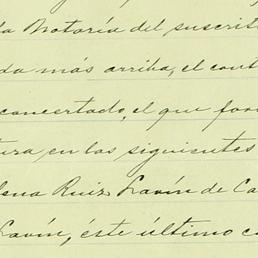 la Notaría del suscrit
da más arriba, el cont
concertado, el que for
tura en las siguientes
lena Ruiz Lavín de Ca
Lavín, éste último co